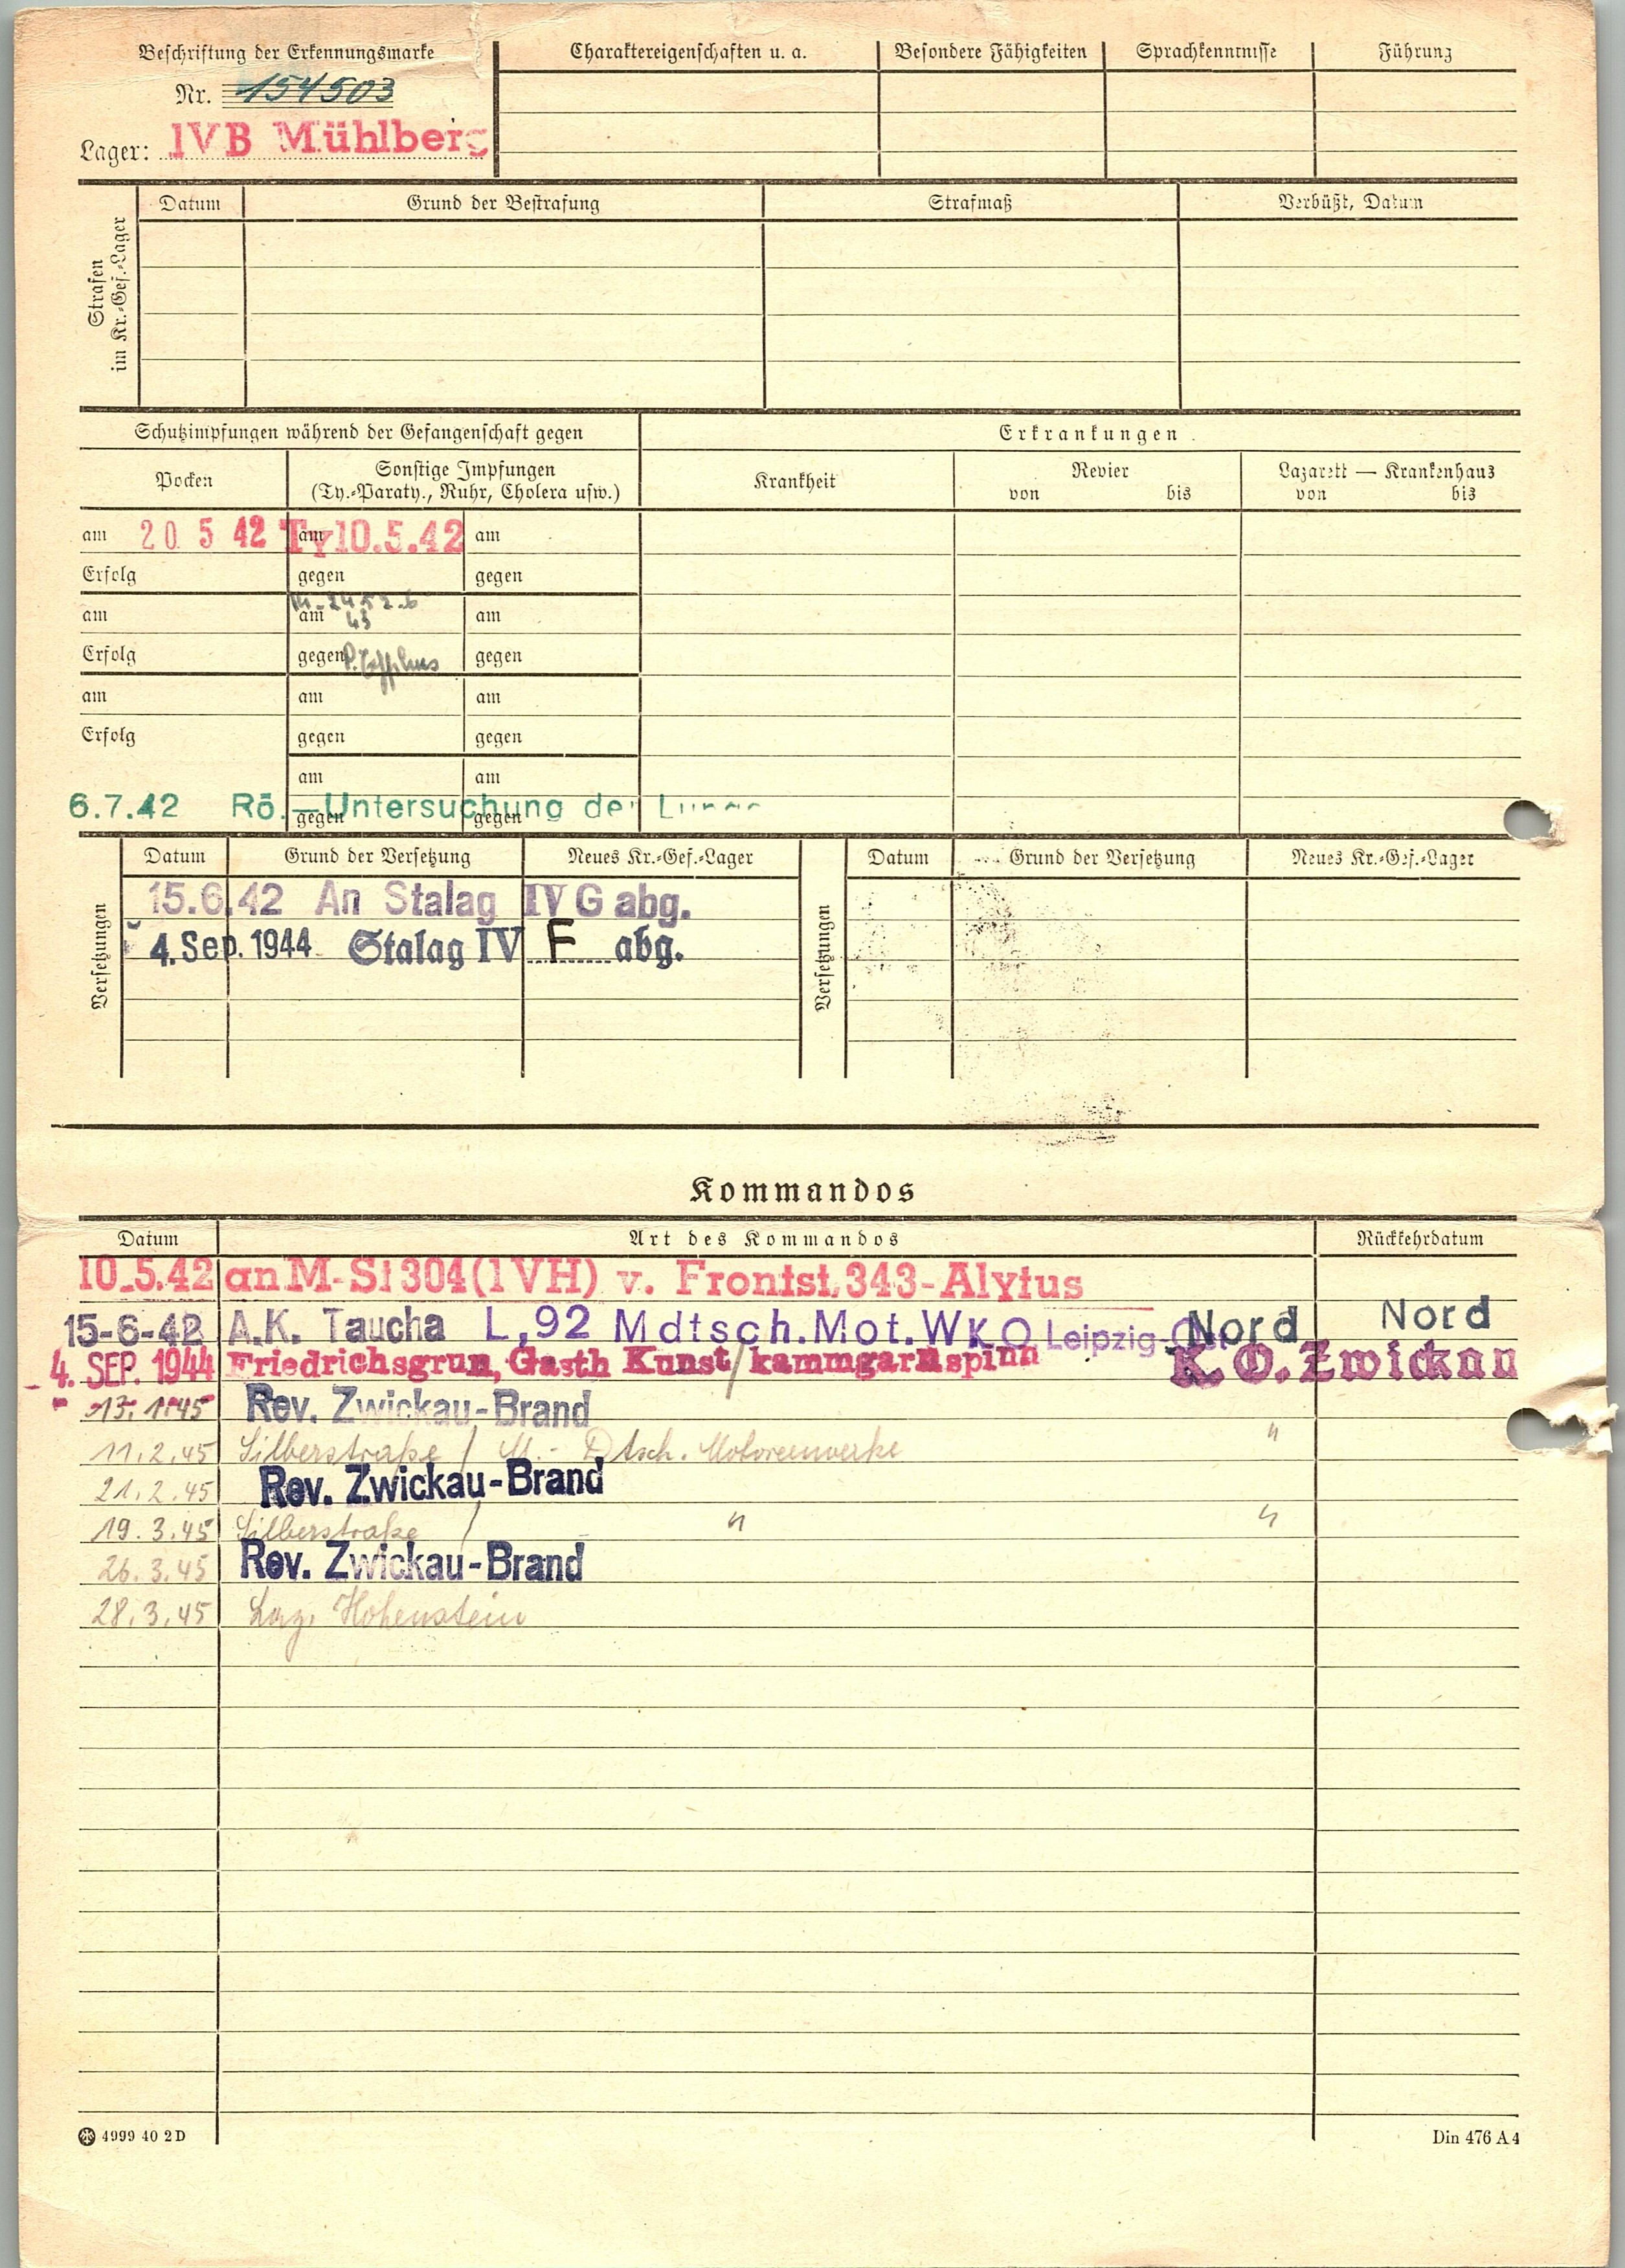 Beschriftung der Erkennungsmarke
Nr. 154503
Lager: IVB Mühlberg
Charaktereigenschaften u. a. Besondere Fähigkeiten Sprachkenntnisse Führung
Strafen im Kr.-Gef.-Lager
Datum Grund der Bestrafung Strafmaß Verbüßt, Datum
Schutzimpfungen während der Gefangenschaft gegen Erkrankungen
Pocken Sonstige Impfungen Krankheit Revier Lazarett — Krankenhaus
(Ty.-Paraty., Ruhr, Cholera usw.) von bis von bis
am 20 5 42 am Ty 10.5.42 am
Erfolg gegen gegen
am am 43 am
Erfolg gegen gegen
am am am
Erfolg gegen gegen
am am
6.7.42 Rö.-Untersuchung der Lunge
gegen gegen
Versetzungen
Datum Grund der Versetzung Neues Kr.-Gef.-Lager
15.6.42 An Stalag IV G abg.
4. Sep. 1944 Stalag IV F abg.
Versetzungen
Datum Grund der Versetzung Neues Kr.-Gef.-Lager
Kommandos
Datum Art des Kommandos Rückkehrdatum
10.5.42 an M-St 304 (IVH) v. Frontst. 343-Alytus
15-6-42 A.K. Taucha L,92 Mdtsch.Mot.W K.O Leipzig- Nord Nord
4. SEP. 1944 Friedrichsgrun, Gasth Kunst / kammgarnspinn K. O. Zwickau
13. 1. 45 Rev. Zwickau-Brand
11.2.45 Silberstraße / M.- Dtsch. Motorenwerke "
21.2.45 Rev. Zwickau-Brand
19.3.45 Silberstraße / " "
26.3.45 Rev. Zwickau-Brand
28.3.45 Laz. Hohenstein
4999 40 2 D Din 476 A 4